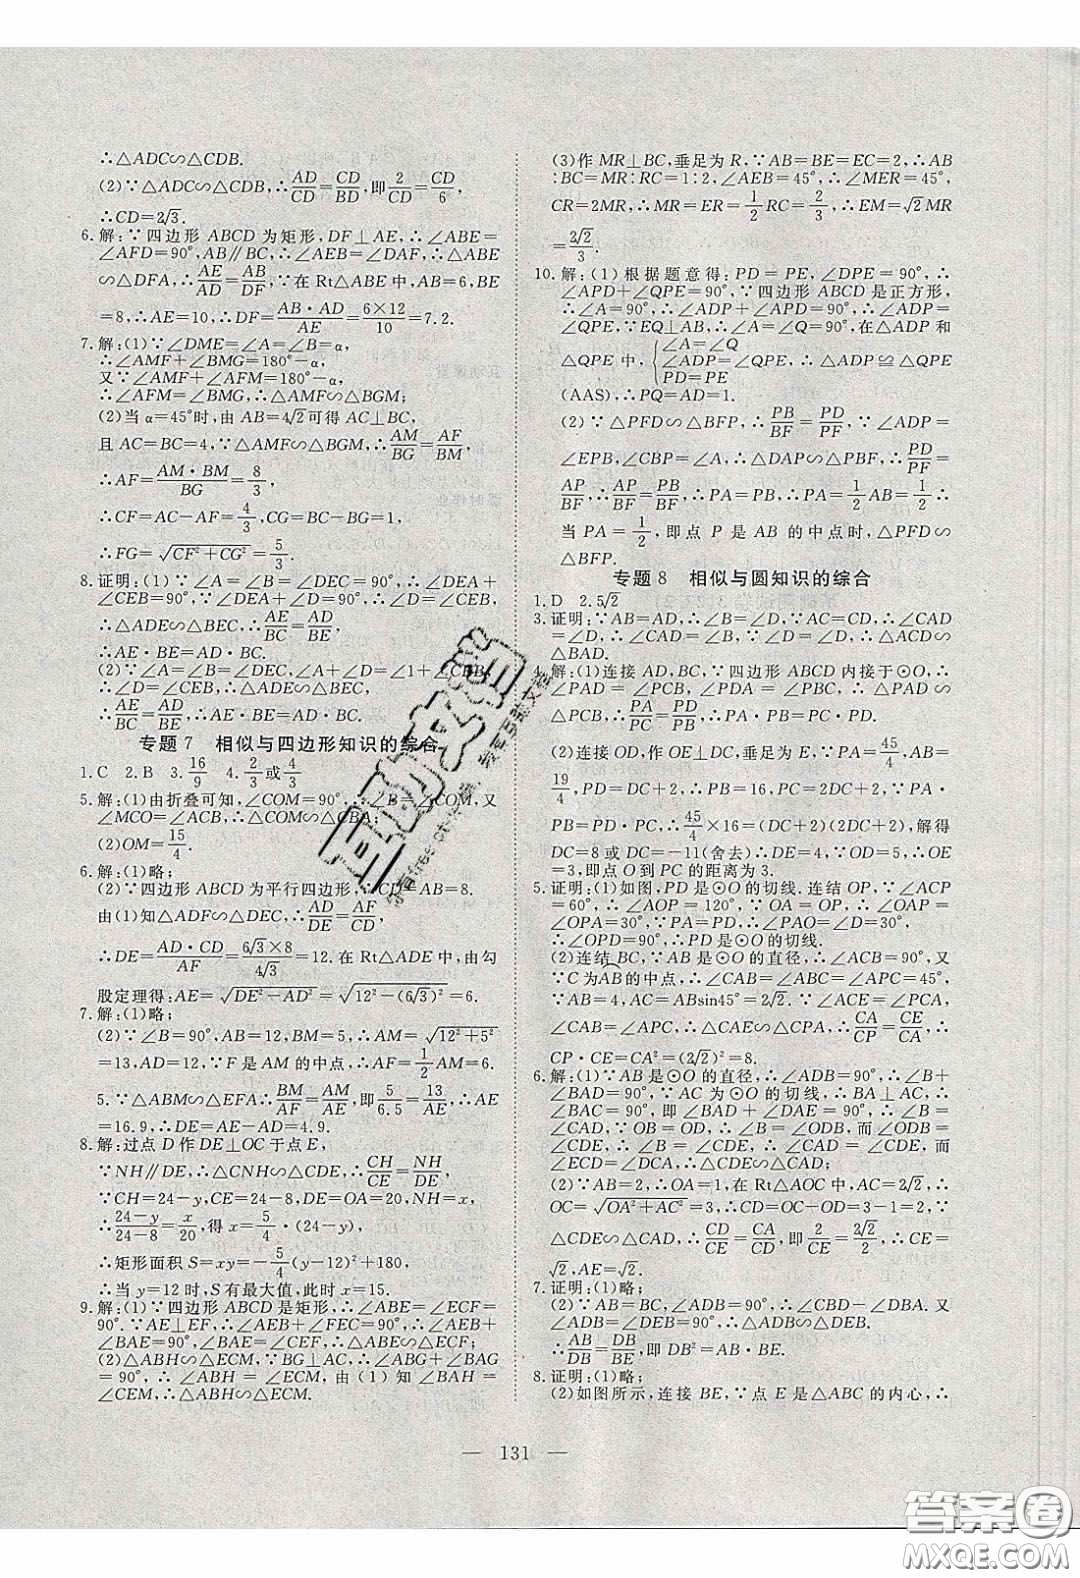 ∴△ADC∽△CDB.
(2)∵△ADC∽△CDB,∴AD/CD=CD/BD,即2/CD=CD/6,
∴CD=2√3.
6.解:∵四边形 ABCD 为矩形,DF⊥AE,∴∠ABE=
∠AFD=90°,AB∥BC,∴∠AEB=∠DAF,∴△ABE
∽△DFA,∴AE/AD=AB/DF,∵在 Rt△ABE 中,AB=6,BE
=8,∴AE=10,∴DF=AB·AD/AE=6×12/10=7.2.
7.解:(1)∵∠DME=∠A=∠B=α,
∴∠AMF+∠BMG=180°-α,
又∵∠AMF+∠AFM=180°-α,
∴∠AFM=∠BMG,∴△AMF∽△BGM;
(2)当 α=45°时,由 AB=4√2可得 AC⊥BC,
且 AC=BC=4,∵△AMF∽△BGM,∴AM/BG=AF/BM,
∴AF=AM·BM/BG=8/3,
∴CF=AC-AF=4/3,CG=BC-BG=1,
∴FG=√(CF²+CG²)=5/3.
8.证明:(1)∵∠A=∠B=∠DEC=90°,∴∠DEA+
∠CEB=90°,∵∠DEA+∠D=90°,∴∠D=∠CEB,
∴△ADE∽△BEC,∴AE/BC=AD/BE,
∴AE·BE=AD·BC.
(2)∵∠A=∠B=∠DEC,∠A+∠D=∠1+∠CEB,
∴∠D=∠CEB,∴△ADE∽△BEC,
∴AE/BC=AD/BE,∴AE·BE=AD·BC.
专题 7 相似与四边形知识的综合
1.C 2.B 3.16/9 4.2/3或4/3
5.解:(1)由折叠可知,∠COM=90°,∴∠B=∠COM,又
∠MCO=∠ACB,∴△COM∽△CBA;
(2)OM=15/4.
6.解:(1)略;
(2)∵四边形 ABCD 为平行四边形,∴CD=AB=8.
由(1)知△ADF∽△DEC,∴AD/DE=AF/CD,
∴DE=AD·CD/AF=6√3×8/4√3=12.在 Rt△ADE 中,由勾
股定理得:AE=√(DE²-AD²)=√(12²-(6√3)²)=6.
7.解:(1)略;
(2)∵∠B=90°,AB=12,BM=5,∴AM=√(12²+5²)
=13,AD=12,∵F 是 AM 的中点,∴AF=1/2AM=6.
5.∵△ABM∽△EFA∴BM/AF=AM/AE,即5/6.5=13/AE,∴AE
=16.9,∴DE=AE-AD=4.9.
8.解:过点 D 作 DE⊥OC 于点 E,
∵NH∥DE,∴△CNH∽△CDE,∴CH/CE=NH/DE,
∵CH=24-y,CE=24-8,DE=OA=20,NH=x,
∴24-y/24-8=x/20,得 x=5/4·(24-y),
∴矩形面积 S=xy=-5/4(y-12)²+180,
∴当 y=12 时,S 有最大值,此时 x=15.
9.解:(1)∵四边形 ABCD 是矩形,∴∠ABE=∠ECF=
90°.∵AE⊥EF,∴∠AEB+∠FEC=90°.∴∠AEB+
∠BAE=90°,∴∠BAE=∠CEF,∴△ABE∽△ECF;
(2)△ABH∽△ECM,∵BG⊥AC,∴∠ABG+∠BAG
=90°,∴∠ABH=∠ECM,由(1)知∠BAH=
∠CEM,∴△ABH∽△ECM.
(3)作 MR⊥BC,垂足为 R,∵AB=BE=EC=2,∴AB
∶BC=MR∶RC=1∶2,∠AEB=45°,∴∠MER=45°,
CR=2MR,∴MR=ER=1/2RC=2/3,∴EM=√2MR
=2√2/3.
10.解:(1)根据题意得:PD=PE,∠DPE=90°,∴
∠APD+∠QPE=90°,∵四边形 ABCD 是正方形,
∴∠A=90°,∴∠ADP+∠APD=90°,∴∠ADP=
∠QPE,∵EQ⊥AB,∴∠A=∠Q=90°,在△ADP 和
△QPE 中,{∠A=∠Q ∠ADP=∠QPE,∴△ADP≌△QPE PD=PE
(AAS),∴PQ=AD=1.
(2)∵△PFD∽△BFP,∴PB/BF=PD/PF,∵∠ADP=
∠EPB,∠CBP=∠A,∴△DAP∽△PBF,∴PD/PF=
AP/BF,∴AP/BF=PB/BF,∴PA=PB,∴PA=1/2AB=1/2∴
当 PA=1/2,即点 P 是 AB 的中点时,△PFD∽
△BFP.
专题 8 相似与圆知识的综合
1.D 2.5√2
3.证明:∵AB=AD,∴∠B=∠D,∵∠B=∠C,∴∠C
=∠D,∵∠CAD=∠D,∴∠C=∠CAD,∴△ACD∽
△BAD.
4.解:(1)连接 AD,BC,∵四边形 ABCD 内接于⊙O,∴
∠PAD=∠PCB,∠PDA=∠PBC,∴△PAD∽
△PCB,∴PA/PC=PD/PB,∴PA·PB=PD·PC.
(2)连接 OD,作 OE⊥DC,垂足为 E,∵PA=45/4,AB=
19/4,PD=DC+2,∴PB=16,PC=2DC+2,∵PA·
PB=PD·PC,∴45/4×16=(DC+2)(2DC+2),解得
DC=8 或 DC=-11(舍去)∴DE=4,∵OD=5,∴OE
=3,即点 O 到 PC 的距离为 3.
5.证明:(1)如图,PD 是⊙O 的切线.连结 OP,∵∠ACP
=60°,∴∠AOP=120°,∵OA=OP,∴∠OAP=
∠OPA=30°,∵PA=PD,∴∠PAO=∠D=30°,
∴∠OPD=90°,∴PD 是⊙O 的切线.
(2)连结 BC,∵AB 是⊙O 的直径,∴∠ACB=90°,又
∵C 为AB的中点,∴∠CAB=∠ABC=∠APC=45°,
∵AB=4,AC=ABsin45°=2√2.∵∠ACE=∠PCA,
∠CAB=∠APC,∴△CAE∽△CPA,∴CA/CP=CE/CA,∴
CP·CE=CA²=(2√2)²=8.
6.解:(1)∵AB 是⊙O 的直径,∴∠ADB=90°,∴∠B+
∠BAD=90°,∵AC 为⊙O 的切线,∴BA⊥AC,∴
∠BAC=90°,即∠BAD+∠DAE=90°,∴∠B=
∠CAD,∵OB=OD,∴∠B=∠ODB,而∠ODB=
∠CDE,∴∠B=∠CDE,∴∠CAD=∠CDE,而
∠ECD=∠DCA,∴△CDE∽△CAD.
(2)∵AB=2,∴OA=1,在 Rt△AOC 中,AC=2√2,∴
OC=√(OA²+AC²)=3,∴CD=OC-OD=3-1=2,∵
△CDE∽△CAD,∴CD/CE=CA/CD,即2/CE=2√2/2,∴CE=
√2,AE=√2.
7.证明:(1)略;
(2)∵AB=BC,∠ADB=90°,∴∠CBD-∠DBA.又
∠ADB=∠DEB=90°,∴△ABD∽△DBE,
∴AB/DB=DB/BE,即 DB²=AB·BE.
8.证明:(1)略;
(2)如图所示,连接 BE,∵点 E 是△ABC 的内心,∴
— 131 —
答案圈
MXQE.COM